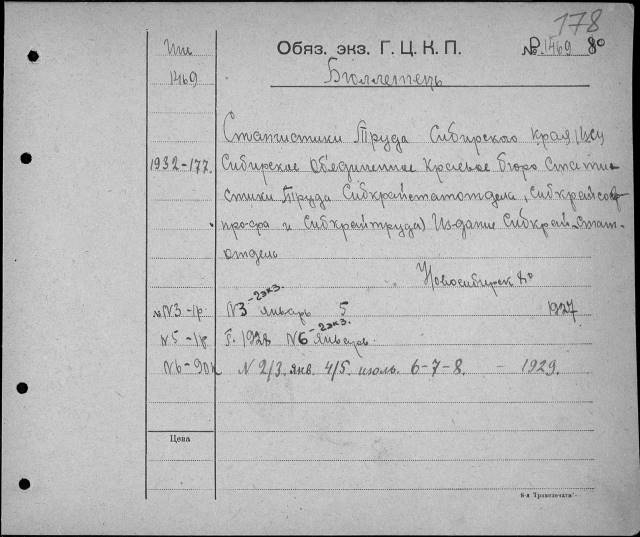 178
Обяз. экз. Г. Ц. К. П. № Р 1469 8°
Бюллетень
1469
Статистики Труда Сибирского края
1932-177. Сибирское Объединенное Краевое бюро Стати
стики Труда Сибкрайстатотдела, Сибкрайсов
про-фа и Сибкрайтруда) Издание Сибкрай-стат-
отдель
Новосибирск 8°
-2экз.
№N3-1р. N3 январь 5 1927
-2экз.
N5-1р. Г. 1928 N6-январь
N6-90к N 2/3. янв. 4/5. июль. 6-7-8. - 1929.
Цена